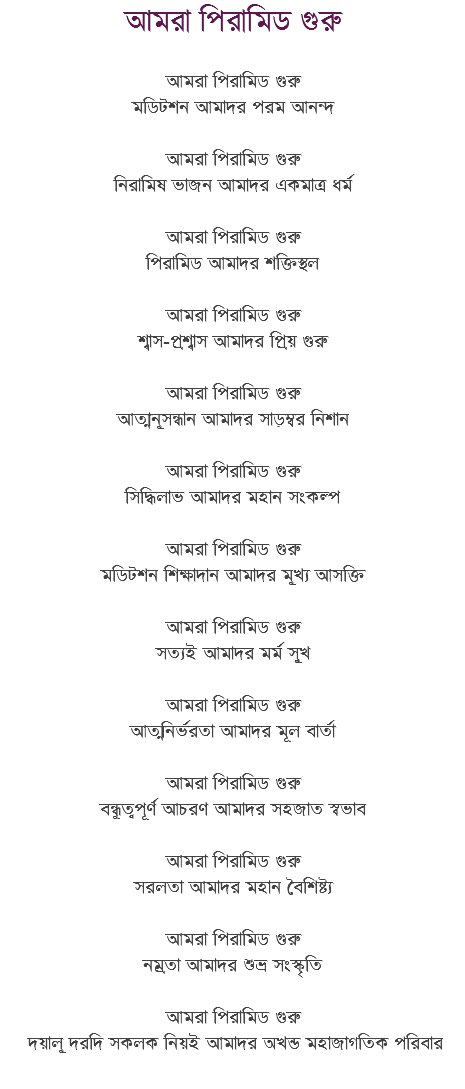 আমরা পিরামিড গুরু
আমরা পিরামিড গুরু
মডিটশন আমাদর পরম আনন্দ
আমরা পিরামিড গুরু
নিরামিষ ভাজন আমাদর একমাত্র ধর্ম
আমরা পিরামিড গুরু
পিরামিড আমাদর শক্তিস্থল
আমরা পিরামিড গুরু
শ্বাস-প্রশ্বাস আমাদর প্রিয় গুরু
আমরা পিরামিড গুরু
আত্মানূসন্ধান আমাদর সাড়ম্বর নিশান
আমরা পিরামিড গুরু
সিদ্ধিলাভ আমাদর মহান সংকল্প
আমরা পিরামিড গুরু
মডিটশন শিক্ষাদান আমাদর মূখ্য আসক্তি
আমরা পিরামিড গুরু
সত্যই আমাদর মর্ম সূখ
আমরা পিরামিড গুরু
আত্মনির্ভরতা আমাদর মূল বার্তা
আমরা পিরামিড গুরু
বন্ধুত্বপূর্ণ আচরণ আমাদর সহজাত স্বভাব
আমরা পিরামিড গুরু
সরলতা আমাদর মহান বৈশিষ্ট্য
আমরা পিরামিড গুরু
নম্রতা আমাদর শুভ্র সংস্কৃতি
আমরা পিরামিড গুরু
দয়ালূ দরদি সকলক নিয়ই আমাদর অখন্ড মহাজাগতিক পরিবার